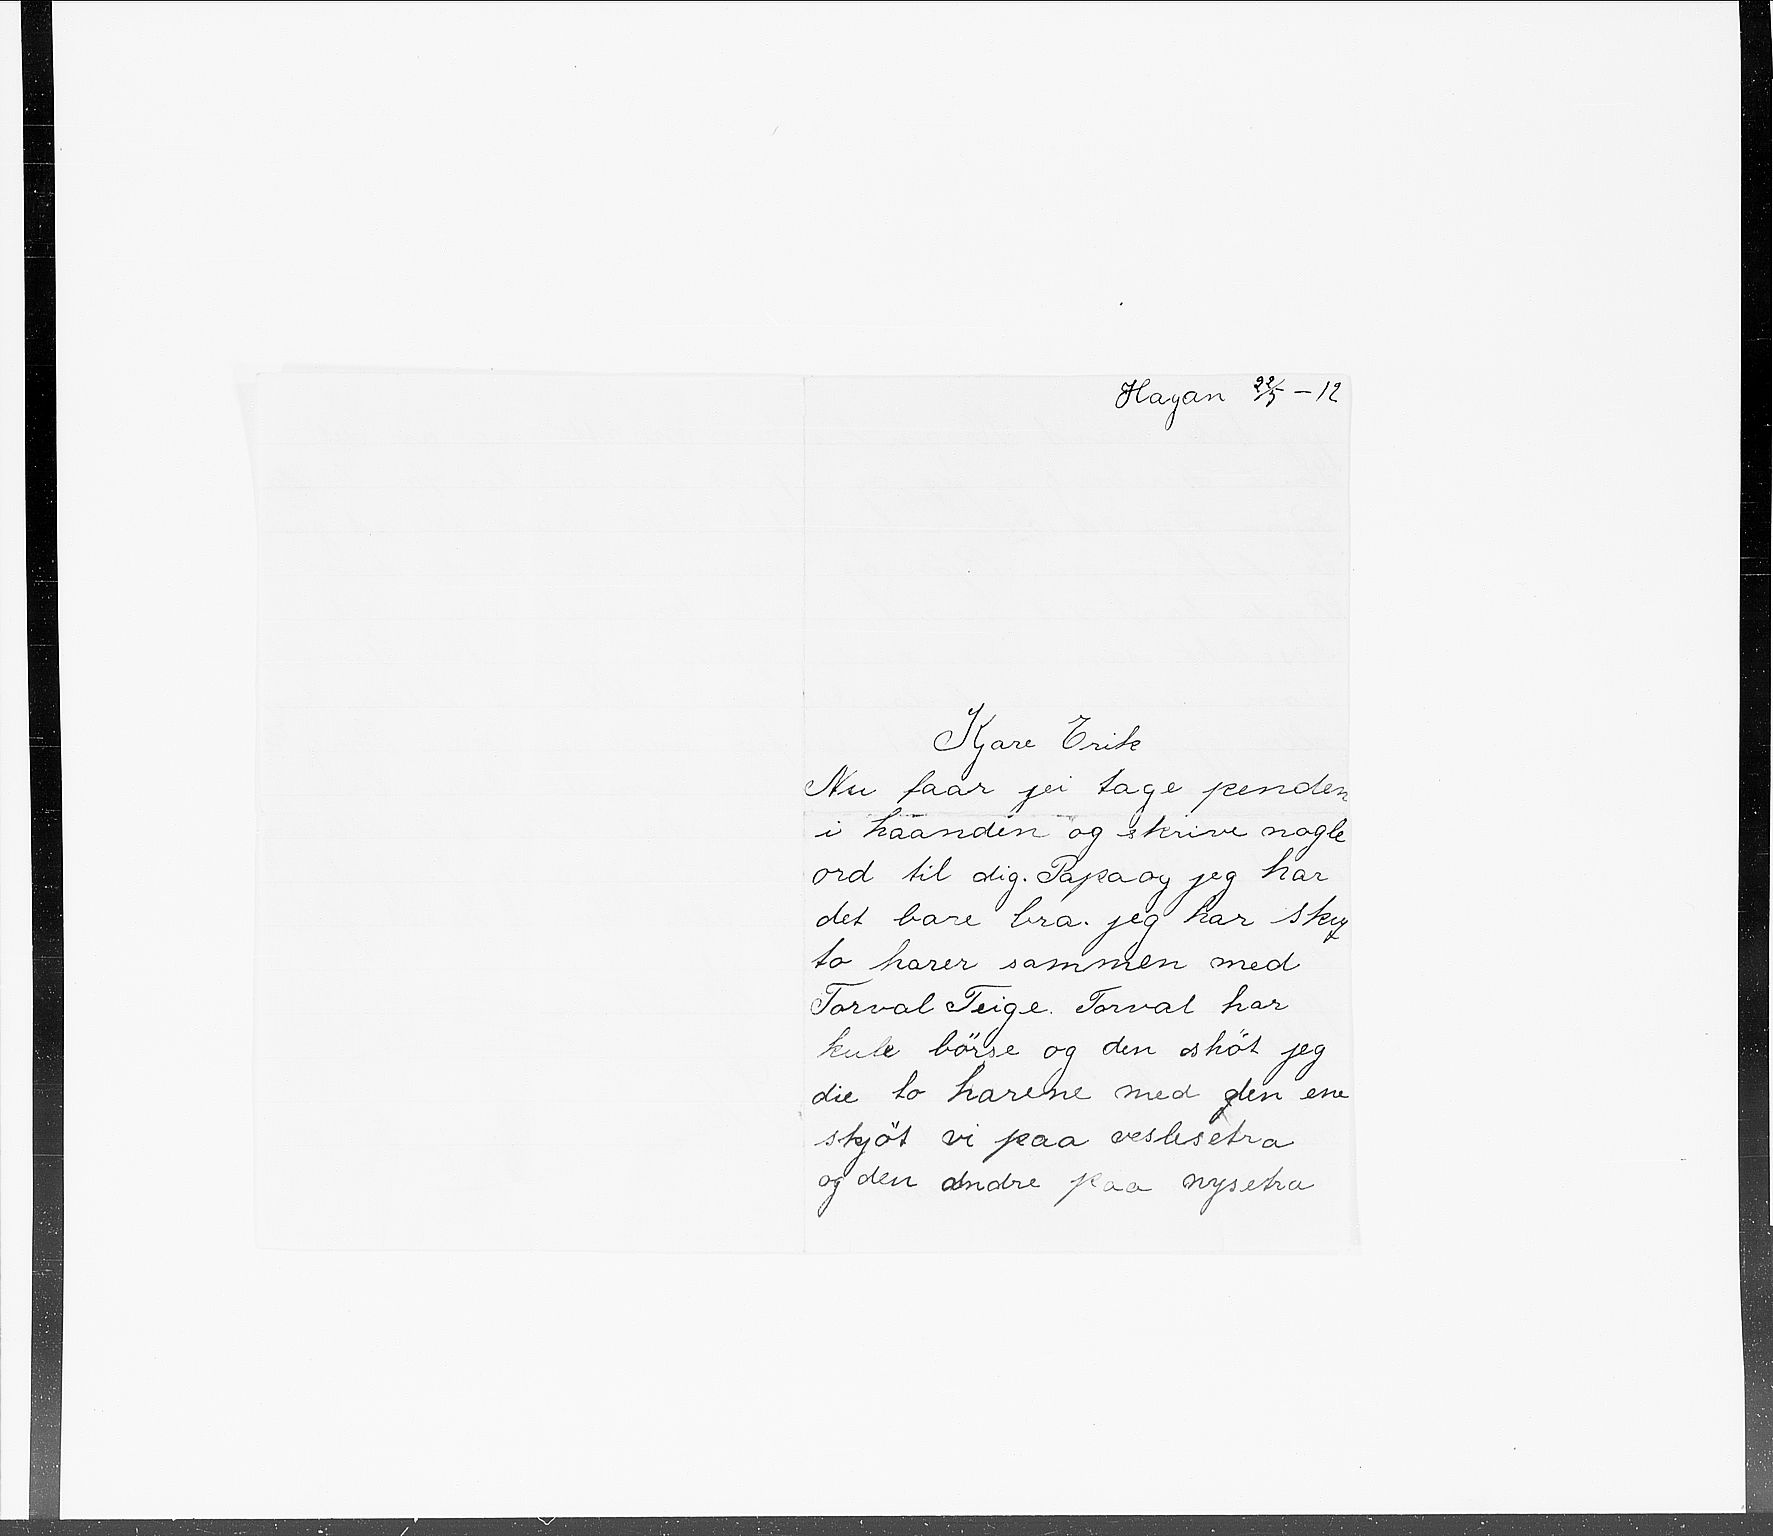 Hagan 22/5 - 12
Kjare Erik
Nu faar jei tage penden
i haanden og skrive nogle
ord til dig. Papa og jeg har
det bare bra. jeg har sky
to harer sammen med
Torval Teige. Torval har
kule börse og den shöt jeg
die to harene med den ene
skjöt vi paa veslesetra
og den andre paa nysetra